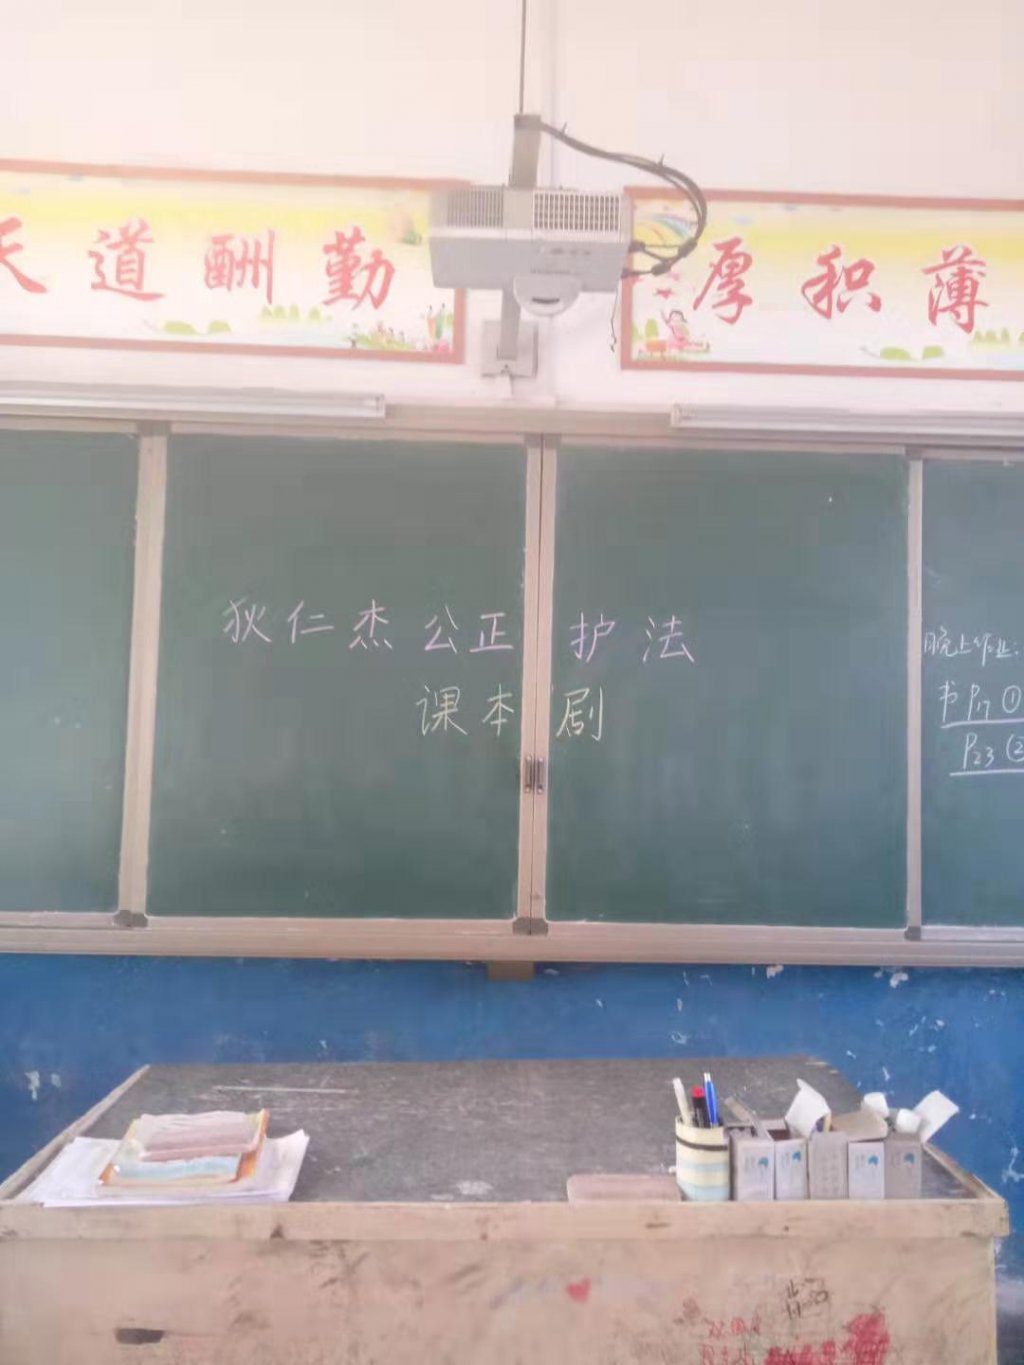 天道酬勤
厚积薄
狄仁杰公正护法
课本剧
晚上作业:
书P17 ①
P23 ②